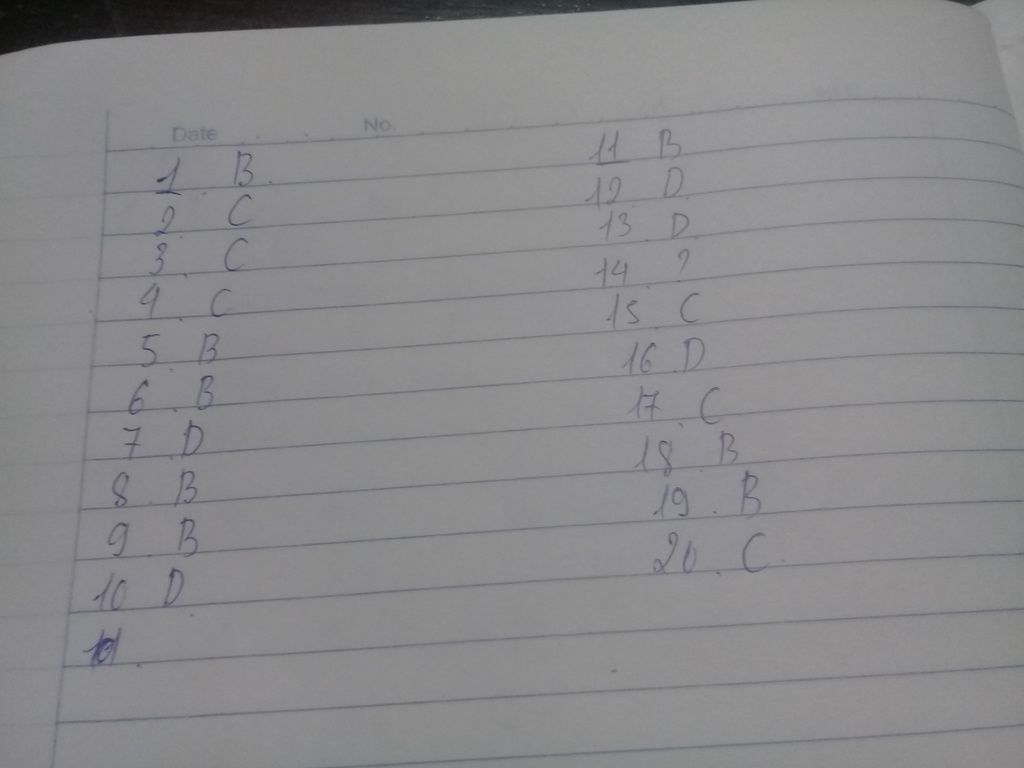 Date No.
1. B.
2. C
3. C
4. C
5. B
6. B
7 D
8. B
9. B
10 D.
11 B
12. D.
13. D
14. ?
15. C
16. D
17. C
18. B
19. B
20. C.